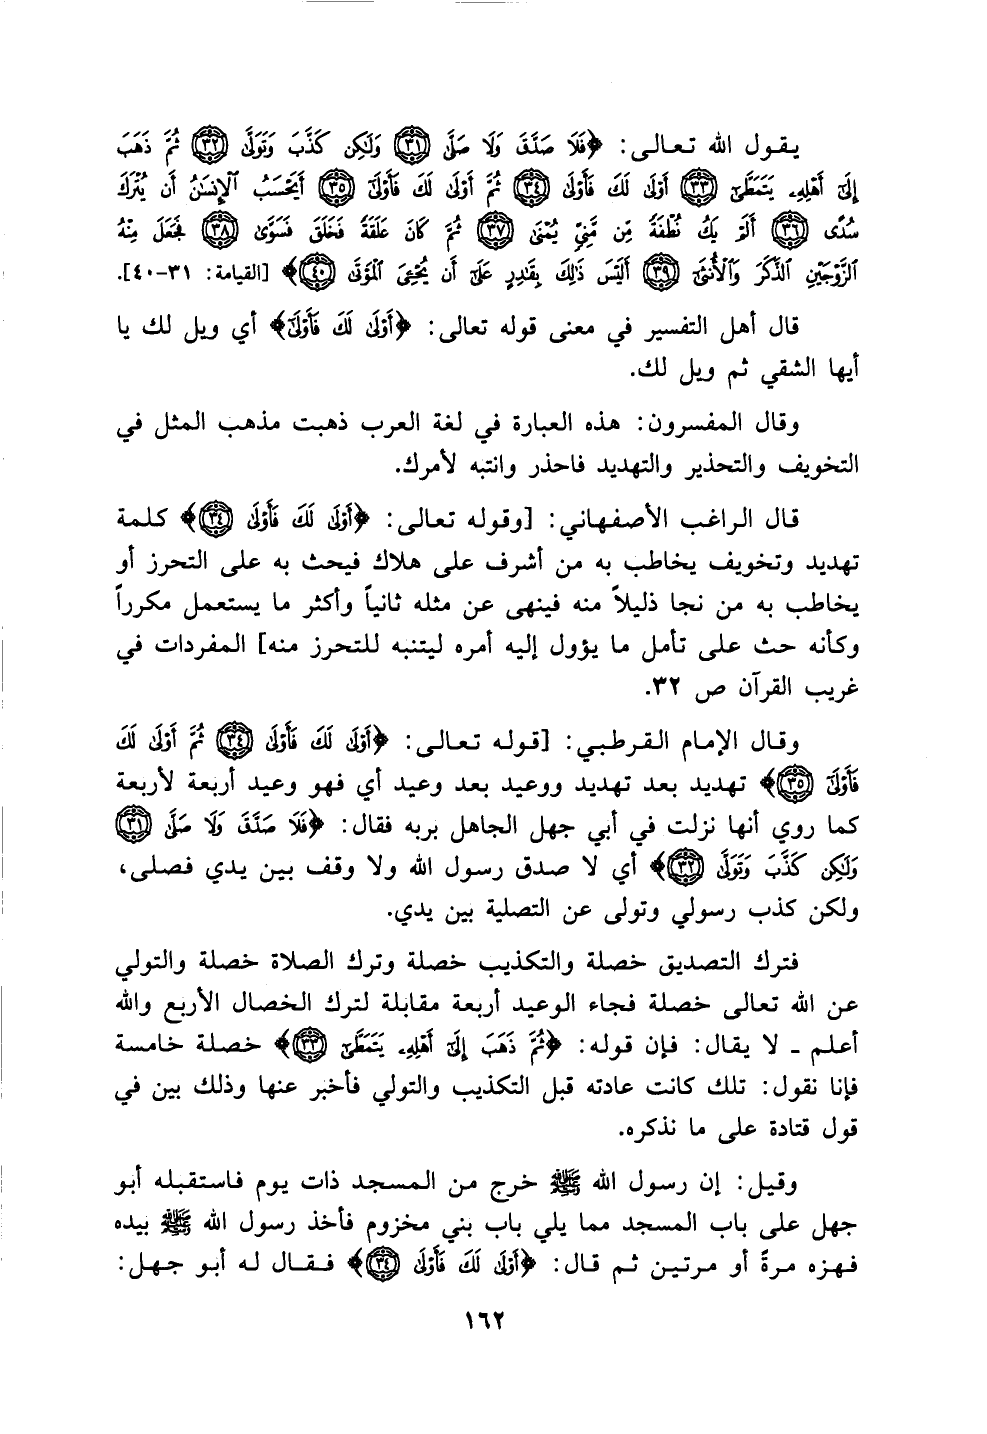 يقول الله تعالى: ﴿فَلَا صَدَّقَ وَلَا صَلَّىٰ ﴿٣١﴾ وَلَٰكِن كَذَّبَ وَتَوَلَّىٰ ﴿٣٢﴾ ثُمَّ ذَهَبَ
إِلَىٰٓ أَهْلِهِۦ يَتَمَطَّىٰٓ ﴿٣٣﴾ أَوْلَىٰ لَكَ فَأَوْلَىٰ ﴿٣٤﴾ ثُمَّ أَوْلَىٰ لَكَ فَأَوْلَىٰٓ ﴿٣٥﴾ أَيَحْسَبُ ٱلْإِنسَٰنُ أَن يُتْرَكَ
سُدًى ﴿٣٦﴾ أَلَمْ يَكُ نُطْفَةً مِّن مَّنِىٍّ يُمْنَىٰ ﴿٣٧﴾ ثُمَّ كَانَ عَلَقَةً فَخَلَقَ فَسَوَّىٰ ﴿٣٨﴾ فَجَعَلَ مِنْهُ
ٱلزَّوْجَيْنِ ٱلذَّكَرَ وَٱلْأُنثَىٰٓ ﴿٣٩﴾ أَلَيْسَ ذَٰلِكَ بِقَٰدِرٍ عَلَىٰٓ أَن يُحْـِۧىَ ٱلْمَوْتَىٰ ﴿٤٠﴾﴾ [القيامة: ٣١-٤٠].
قال أهل التفسير في معنى قوله تعالى: ﴿أَوْلَىٰ لَكَ فَأَوْلَىٰٓ﴾ أي ويل لك يا
أيها الشقي ثم ويل لك.
وقال المفسرون: هذه العبارة في لغة العرب ذهبت مذهب المثل في
التخويف والتحذير والتهديد فاحذر وانتبه لأمرك.
قال الراغب الأصفهاني: [وقوله تعالى: ﴿أَوْلَىٰ لَكَ فَأَوْلَىٰ ﴿٣٤﴾﴾ كلمة
تهديد وتخويف يخاطب به من أشرف على هلاك فيحث به على التحرز أو
يخاطب به من نجا ذليلاً منه فينهى عن مثله ثانياً وأكثر ما يستعمل مكرراً
وكأنه حث على تأمل ما يؤول إليه أمره ليتنبه للتحرز منه] المفردات في
غريب القرآن ص ٣٢.
وقال الإمام القرطبي: [قوله تعالى: ﴿أَوْلَىٰ لَكَ فَأَوْلَىٰ ﴿٣٤﴾ ثُمَّ أَوْلَىٰ لَكَ
فَأَوْلَىٰٓ ﴿٣٥﴾﴾ تهديد بعد تهديد ووعيد بعد وعيد أي فهو وعيد أربعة لأربعة
كما روي أنها نزلت في أبي جهل الجاهل بربه فقال: ﴿فَلَا صَدَّقَ وَلَا صَلَّىٰ ﴿٣١﴾
وَلَٰكِن كَذَّبَ وَتَوَلَّىٰ ﴿٣٢﴾﴾ أي لا صدق رسول الله ولا وقف بين يدي فصلى،
ولكن كذب رسولي وتولى عن التصلية بين يدي.
فترك التصديق خصلة والتكذيب خصلة وترك الصلاة خصلة والتولي
عن الله تعالى خصلة فجاء الوعيد أربعة مقابلة لترك الخصال الأربع والله
أعلم ـ لا يقال: فإن قوله: ﴿ثُمَّ ذَهَبَ إِلَىٰٓ أَهْلِهِۦ يَتَمَطَّىٰٓ ﴿٣٣﴾﴾ خصلة خامسة
فإنا نقول: تلك كانت عادته قبل التكذيب والتولي فأخبر عنها وذلك بين في
قول قتادة على ما نذكره.
وقيل: إن رسول الله ﷺ خرج من المسجد ذات يوم فاستقبله أبو
جهل على باب المسجد مما يلي باب بني مخزوم فأخذ رسول الله ﷺ بيده
فهزه مرةً أو مرتين ثم قال: ﴿أَوْلَىٰ لَكَ فَأَوْلَىٰ ﴿٣٤﴾﴾ فقال له أبو جهل:
١٦٢